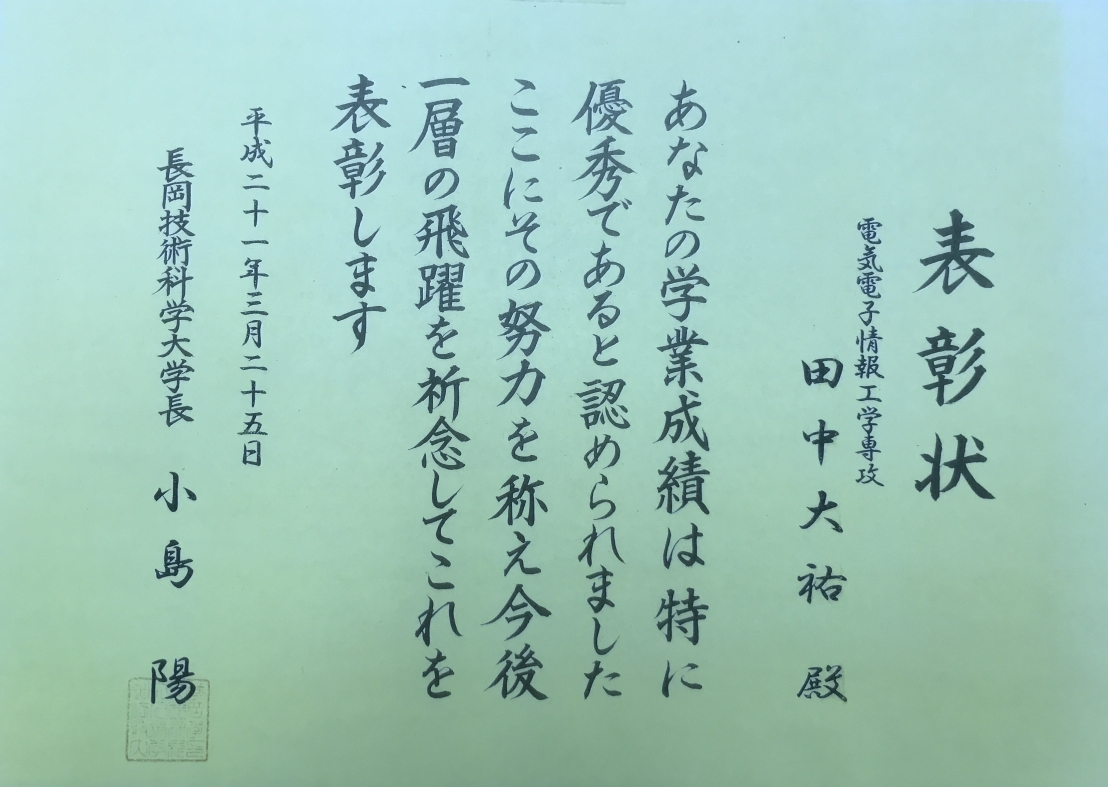 表彰状
電気電子情報工学専攻
田中大祐殿
あなたの学業成績は特に
優秀であると認められました
ここにその努力を称え今後
一層の飛躍を祈念してこれを
表彰します
平成二十一年三月二十五日
長岡技術科学大学長 小島陽